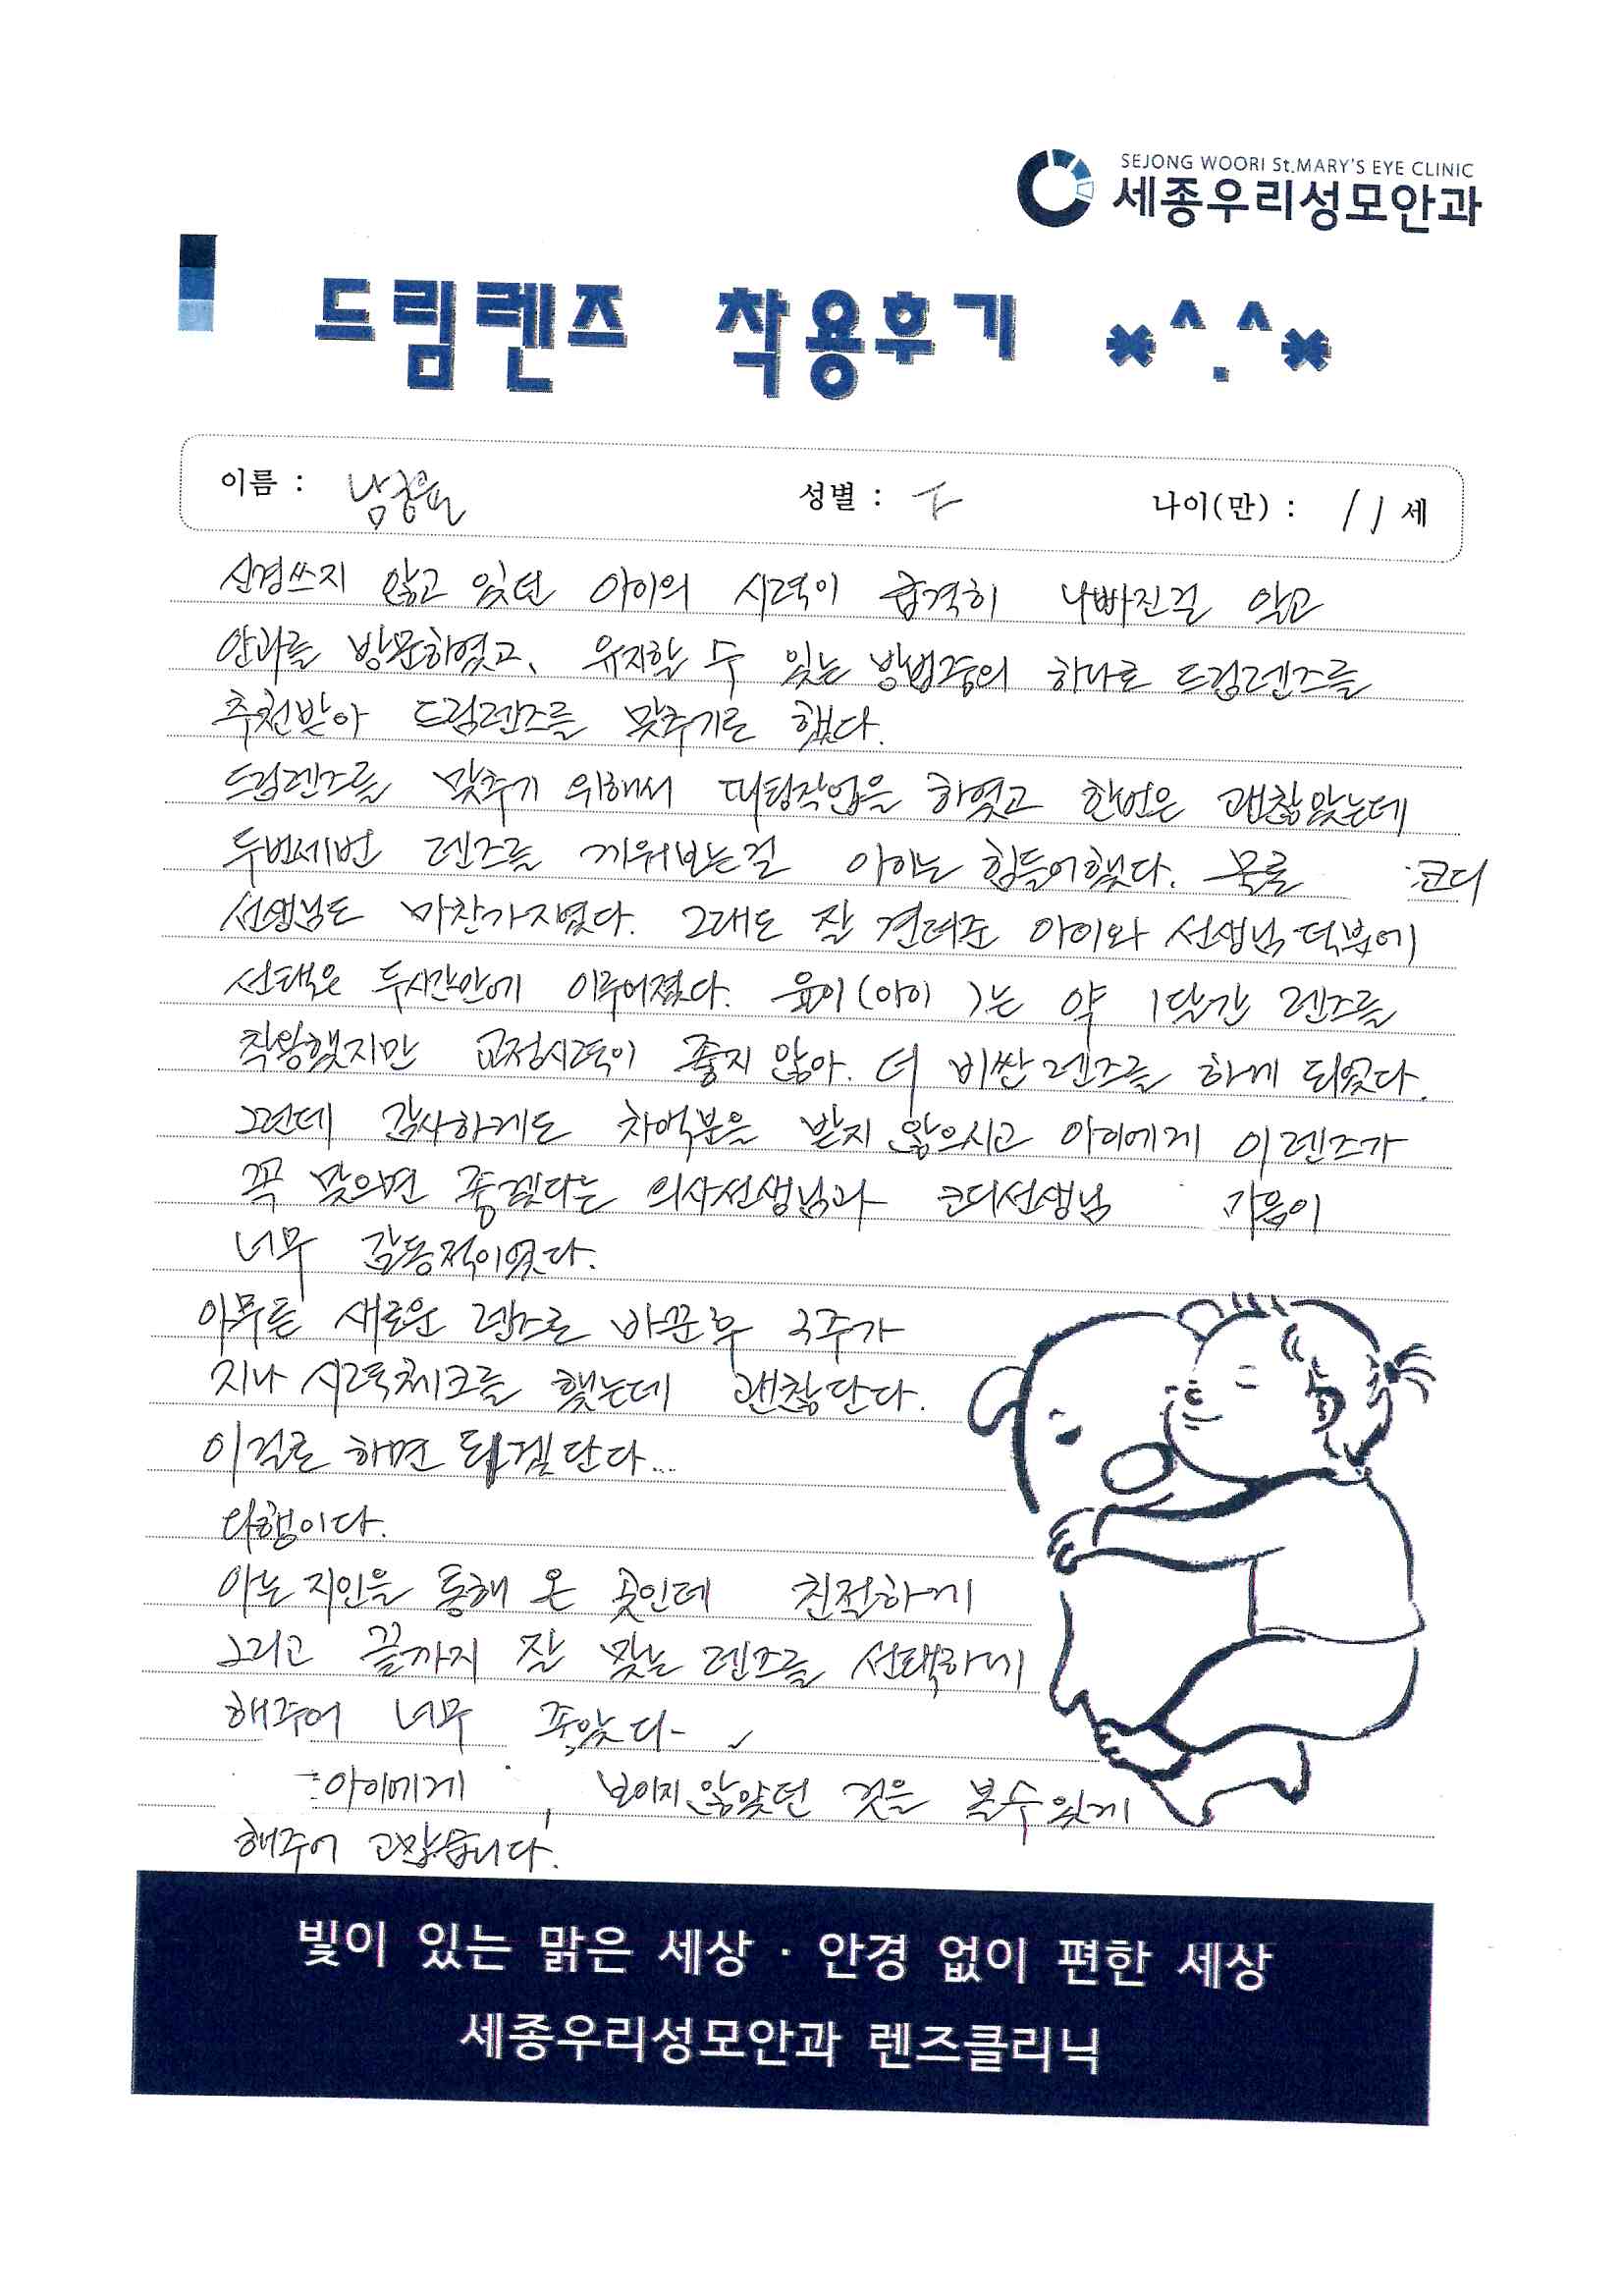 SEJONG WOORI St.MARY'S EYE CLINIC
세종우리성모안과
드림렌즈 착용후기 *^.^*
이름 : 성별 : 나이(만) : 11 세
신경쓰지 않고 있던 아이의 시력이 급격히 나빠진걸 알고
안과를 방문하였고, 유지할 수 있는 방법중의 하나로 드림렌즈를
추천받아 드림렌즈를 맞추기로 했다.
드림렌즈를 맞추기 위해서 작업을 하였고 한번은 괜찮았는데
두번세번 렌즈를 끼워보는걸 아이는 힘들어했다. 물론 코디
선생님도 마찬가지였다. 그래도 잘 견뎌준 아이와 선생님 덕분에
선택은 두시간만에 이루어졌다. 윤이(아이 )는 약 1달간 렌즈를
착용했지만 교정시력이 좋지 않아. 더 비싼 렌즈를 하게 되었다.
그런데 감사하게도 차액분을 받지 않으시고 아이에게 이 렌즈가
꼭 맞으면 좋겠다는 의사선생님과 코디선생님 마음이
너무 감동적이였다.
아무튼 새로운 렌즈로 바꾼후 3주가
지나 시력체크를 했는데 괜찮단다.
이걸로 하면 되겠단다...
다행이다.
아는 지인을 통해 온 곳인데 친절하게
그리고 끝까지 잘 맞는 렌즈를 선택하게
해주어 너무 좋았다
아이에게 보이지 않았던 것을 볼수 있게
해주어 고맙습니다.
빛이 있는 맑은 세상 · 안경 없이 편한 세상
세종우리성모안과 렌즈클리닉